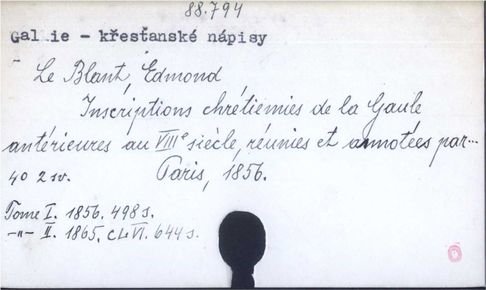 88.794
Gallie - křesťanské nápisy
Le Blant, Edmond
Inscriptions chrétiennes de la Gaule
antérieures au VIIIe siècle, réunies et annotées par...
40 2 sv. Paris, 1856.
Tome I. 1856. 498 s.
-"- II. 1865. CLVI. 644 s.